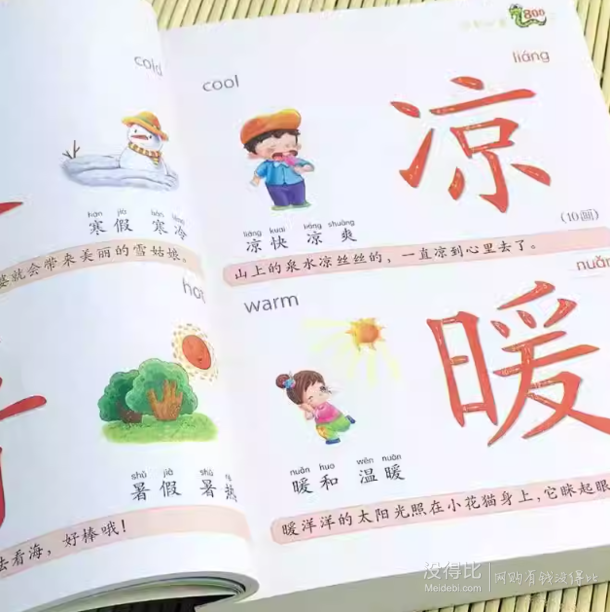 cold
hán jià hán lěng
寒假 寒冷
就会带来美丽的雪姑娘。
hot
shǔ jià shǔ rè
暑假 暑热
去看海，好棒哦！
800
cool
liáng
凉
(10画)
liáng kuai liáng shuǎng
凉快 凉爽
山上的泉水凉丝丝的，一直凉到心里去了。
warm
nuǎn
暖
nuǎn huo wēn nuǎn
暖和 温暖
暖洋洋的太阳光照在小花猫身上，它眯起眼
没得比 网购有钱没得比
Meidebi.com